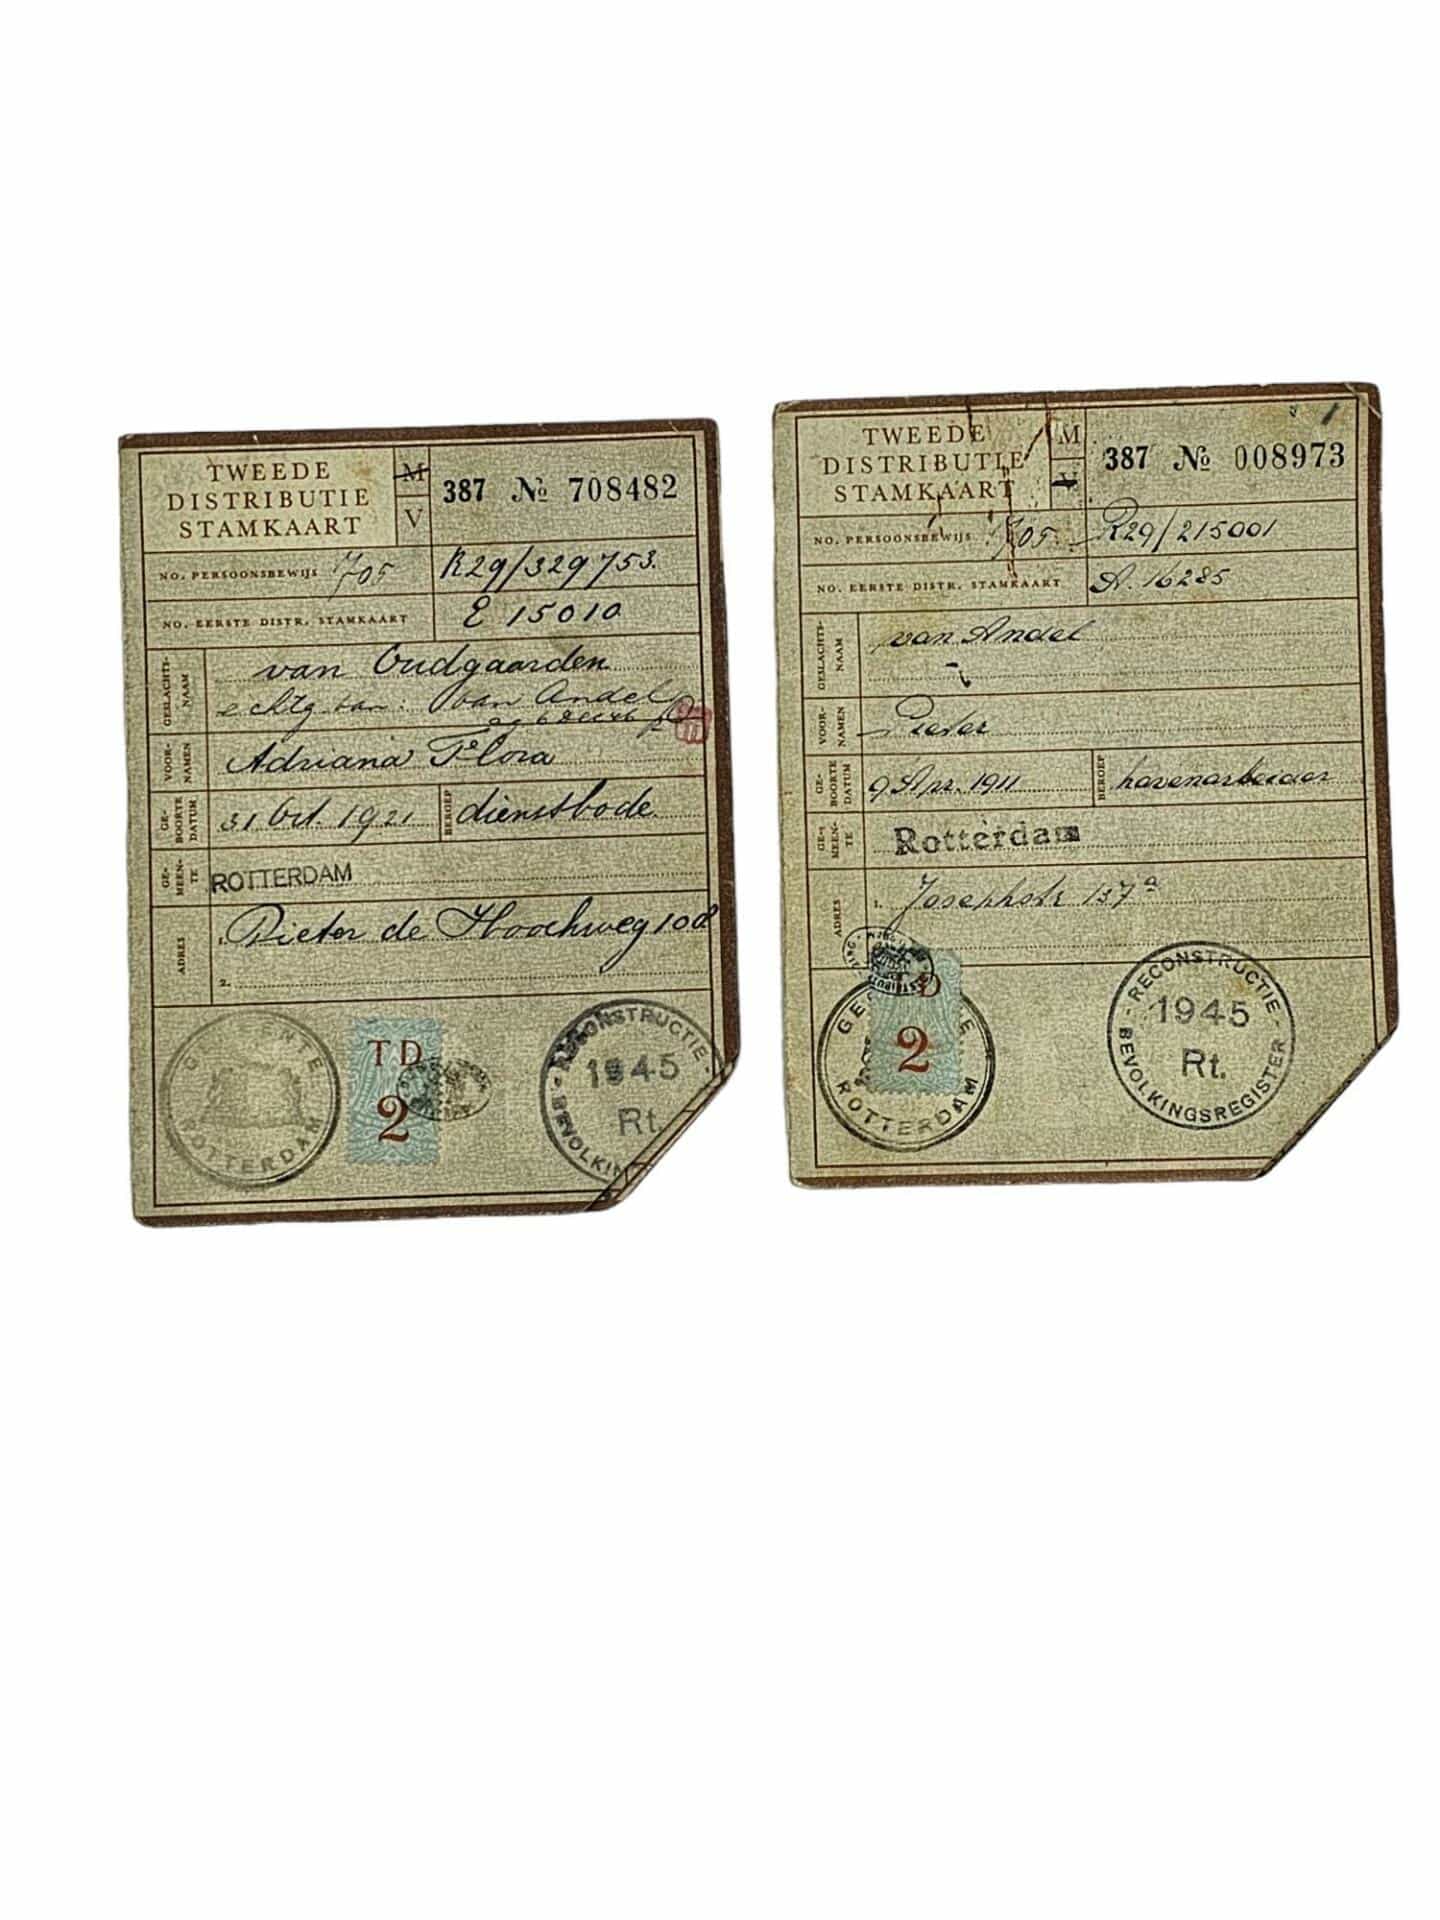 TWEEDE
DISTRIBUTIE
STAMKAART
M
V
387 № 708482
NO. PERSOONSBEWIJS
705
R29/329753.
NO. EERSTE DISTR. STAMKAART
E 15010
GESLACHTS-
NAAM
van Oudgaarden
echtg van: van Andel
VOOR-
NAMEN
Adriana Flora
GE-
BOORTE
DATUM
31 Oct. 1921
BEROEP
dienstbode
GE-
MEEN-
TE
ROTTERDAM
ADRES
1. Pieter de Hoochweg 108
2.
GEMEENTE
ROTTERDAM
TD
2
RECONSTRUCTIE
1945
Rt.
BEVOLKIN
TWEEDE
DISTRIBUTIE
STAMKAART
M
V
387 № 008973
1
NO. PERSOONSBEWIJS
705
R29/215001
NO. EERSTE DISTR. STAMKAART
A. 16285
GESLACHTS-
NAAM
van Andel
VOOR-
NAMEN
Pieter
GE-
BOORTE
DATUM
9 Apr. 1911
BEROEP
havenarbeider
GE-
MEEN-
TE
Rotterdam
ADRES
1. Josephstr 137a
D
2
ROTTERDAM
RECONSTRUCTIE
1945
Rt.
BEVOLKINGSREGISTER